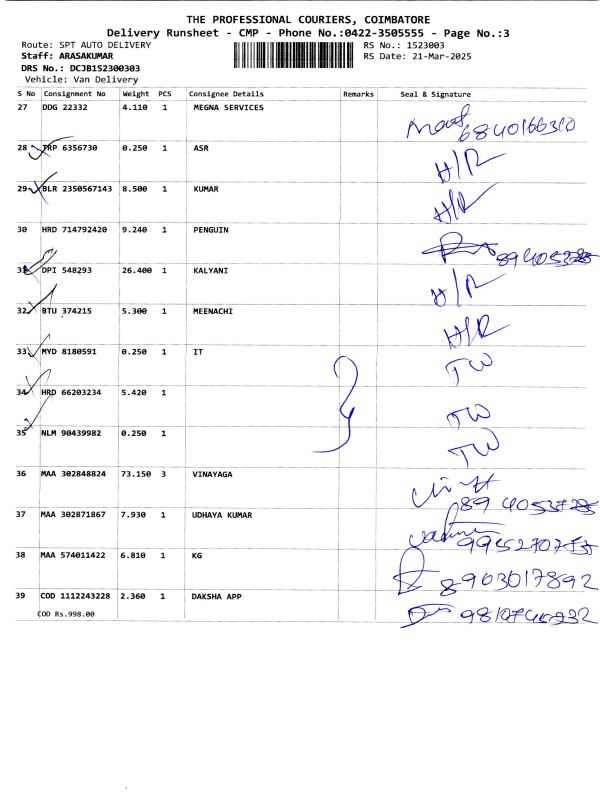 THE PROFESSIONAL COURIERS, COIMBATORE
Delivery Runsheet - CMP - Phone No.:0422-3505555 - Page No.:3
Route: SPT AUTO DELIVERY RS No.: 1523003
Staff: ARASAKUMAR RS Date: 21-Mar-2025
DRS No.: DCJB152300303
Vehicle: Van Delivery
S No Consignment No Weight PCS Consignee Details Remarks Seal & Signature
27 DDG 22332 4.110 1 MEGNA SERVICES
6840166310
28 TRP 6356730 0.250 1 ASR H/R
29 BLR 2350567143 8.500 1 KUMAR H/R
30 HRD 714792420 9.240 1 PENGUIN
31 DPI 548293 26.400 1 KALYANI H/R
32 BTU 374215 5.300 1 MEENACHI H/R
33 MYD 8180591 0.250 1 IT TW
34 HRD 66203234 5.420 1 TW
35 NLM 90439982 0.250 1 TW
36 MAA 302848824 73.150 3 VINAYAGA
37 MAA 302871867 7.930 1 UDHAYA KUMAR
38 MAA 574011422 6.810 1 KG
8963017892
39 COD 1112243228 2.360 1 DAKSHA APP
COD Rs.998.00